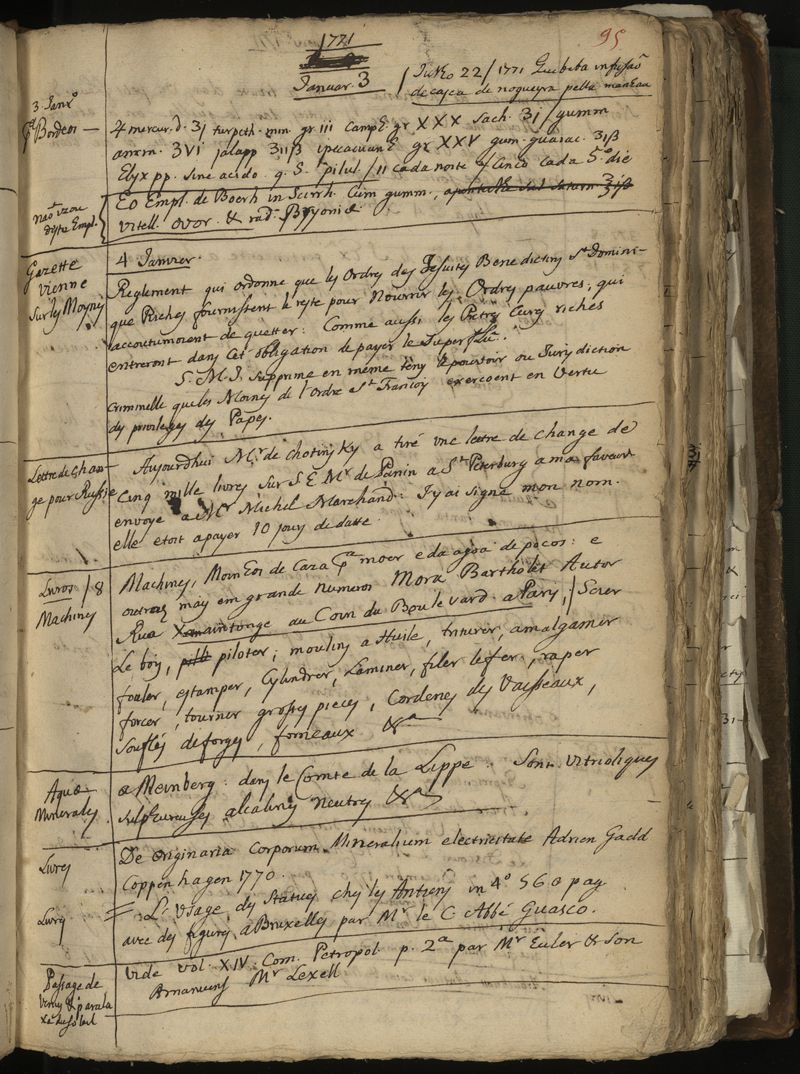 95
1771
Januar. 3
Julho 22 / 1771
de casca de nogueyra pella manhaã
3. Janro
Bordeos —
mercur. d. ʒj turpeth. min. gr. iii Camph. gr XXX Sach. ʒj / gumm
amm. ʒvi jalapp ʒiiß ipecacuanh gr XXV gum. guaiac. ʒiß
Elyx pp. sine acido. q. S. pilul / 11 cada noite / cinco cada 5.º die
Naõ uzou
deste Empl.
Eo Empl. de Boerh in Scirrh. Cum gumm.,
vitell. ovor. & rad. Bryoniæ.
Gazette
vienne
Sur les Moynes
4 Janvier.
Reglement qui ordonne que les Ordres des Jesuites Benedictins St Domini-
que Riches fournissent le reste pour Nourrir les Ordres pauvres, qui
accoutumoient de quetter: Comme aussi les Pretres Cures riches
entreront dans cet obligation de payer le Superflu.
S. M. I. Supprime en même tems le pouvoir ou Jurisdiction
Criminelle que les Moines de l'Ordre St Francois exercoent en vertu
des privileges des Papes.
Lettre de Chan-
ge pour Russie
Aujourdhui Mr. de Chotinsky a tiré une lettre de change de
Cinq mille livres Sur S. E. Mr. de Panin a St Petersburg a ma faveur
envoye a Mr Michel Marchand: J'y ai signé mon nom.
elle etoit a payer 10 jours de datte.
Livros / 8
Machines
Machines, Moinhos de Caza pa moer e da agoa de pocos: e
outras mays em grande numeros Mora Bartholet Autor
Rua Xaintonge au Coin du Boulevard a Paris, / Scier
Le bois, piloter; moulins a Huile, triturer, amalgamer
fouler, estamper, Cylindrer, Laminer, filer le fer, raper
forcer, tourner grosses pieces, Corderies des Vaisseaux,
Soufles de forges, forneaux &a
Aquæ
Minerales
a Meinberg: dans le Comte de la Lippe: Sont vitrioliques
sulphureuses alcalines neutres &a
Livres
De originaria corporum Mineralium electricitate Adrien Gadd
Coppenhagen 1770.
Livres
= L'usage des Statues chez les Antiens in 4º 560 pag.
avec des figures a Bruxelles par Mr le C. Abbé Guasco.
Passage de
Venus & parala
xe du Soleil
vide vol. XIV. Com. Petropol. p. 2a par Mr Euler & Son
Amanuens Mr Lexell